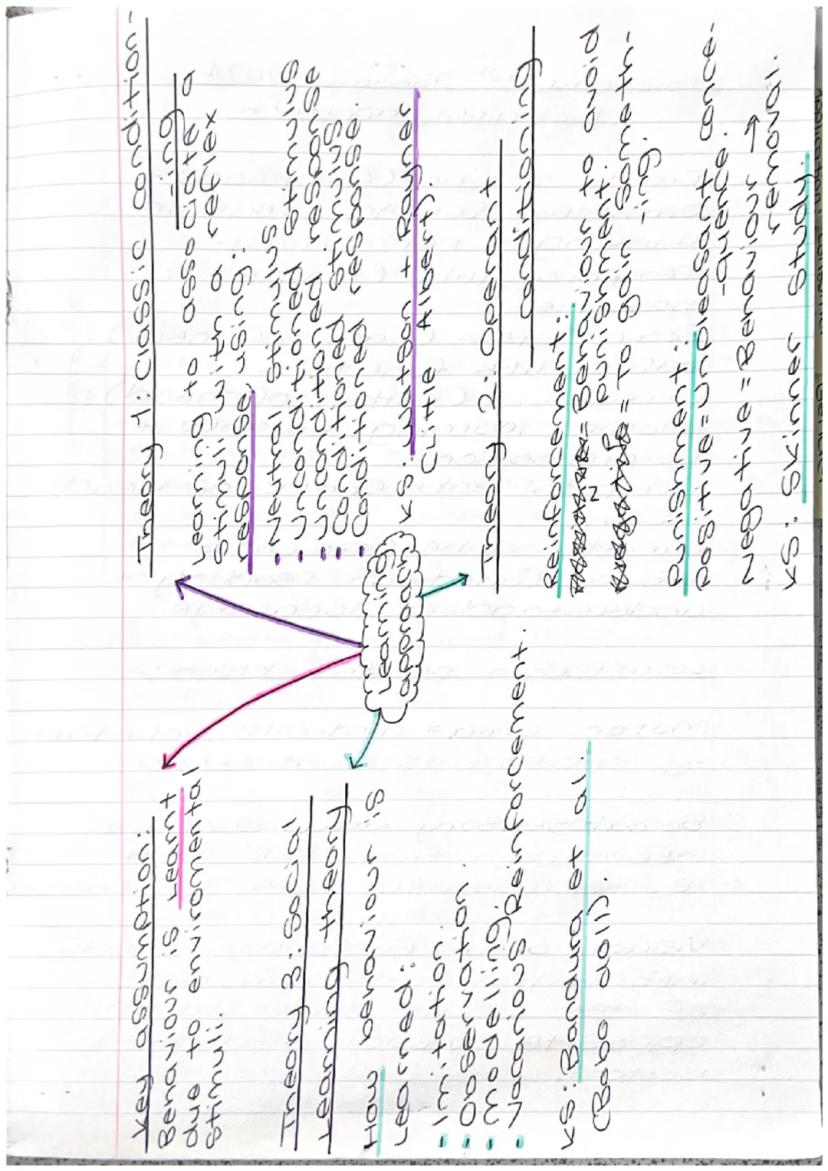 Learning
approach
Key assumption:
Behaviour is learnt
due to enviromental
stimuli.
Theory 1: Classic condition-
-ing
Learning to associate a
stimuli with a reflex
response, using:
- Neutral stimulus
- Unconditioned stimulus
- Unconditioned response
- Conditioned stimulus
- Conditioned response.
KS: Watson + Rayner
(Little Albert).
Theory 2: Operant
conditioning
Reinforcement:
= Behaviour to avoid
N punishment.
= To gain someth-
-ing.
Punishment:
Positive = Unpleasant conce-
-quence.
Negative = Behaviour →
removal.
KS: Skinner Study.
Theory 3: Social
Learning theory
How behaviour is
learned:
- Imitation.
- Observation.
- Modelling.
- Vacarious Reinforcement.
KS: Bandura et al.
(Bobo doll).